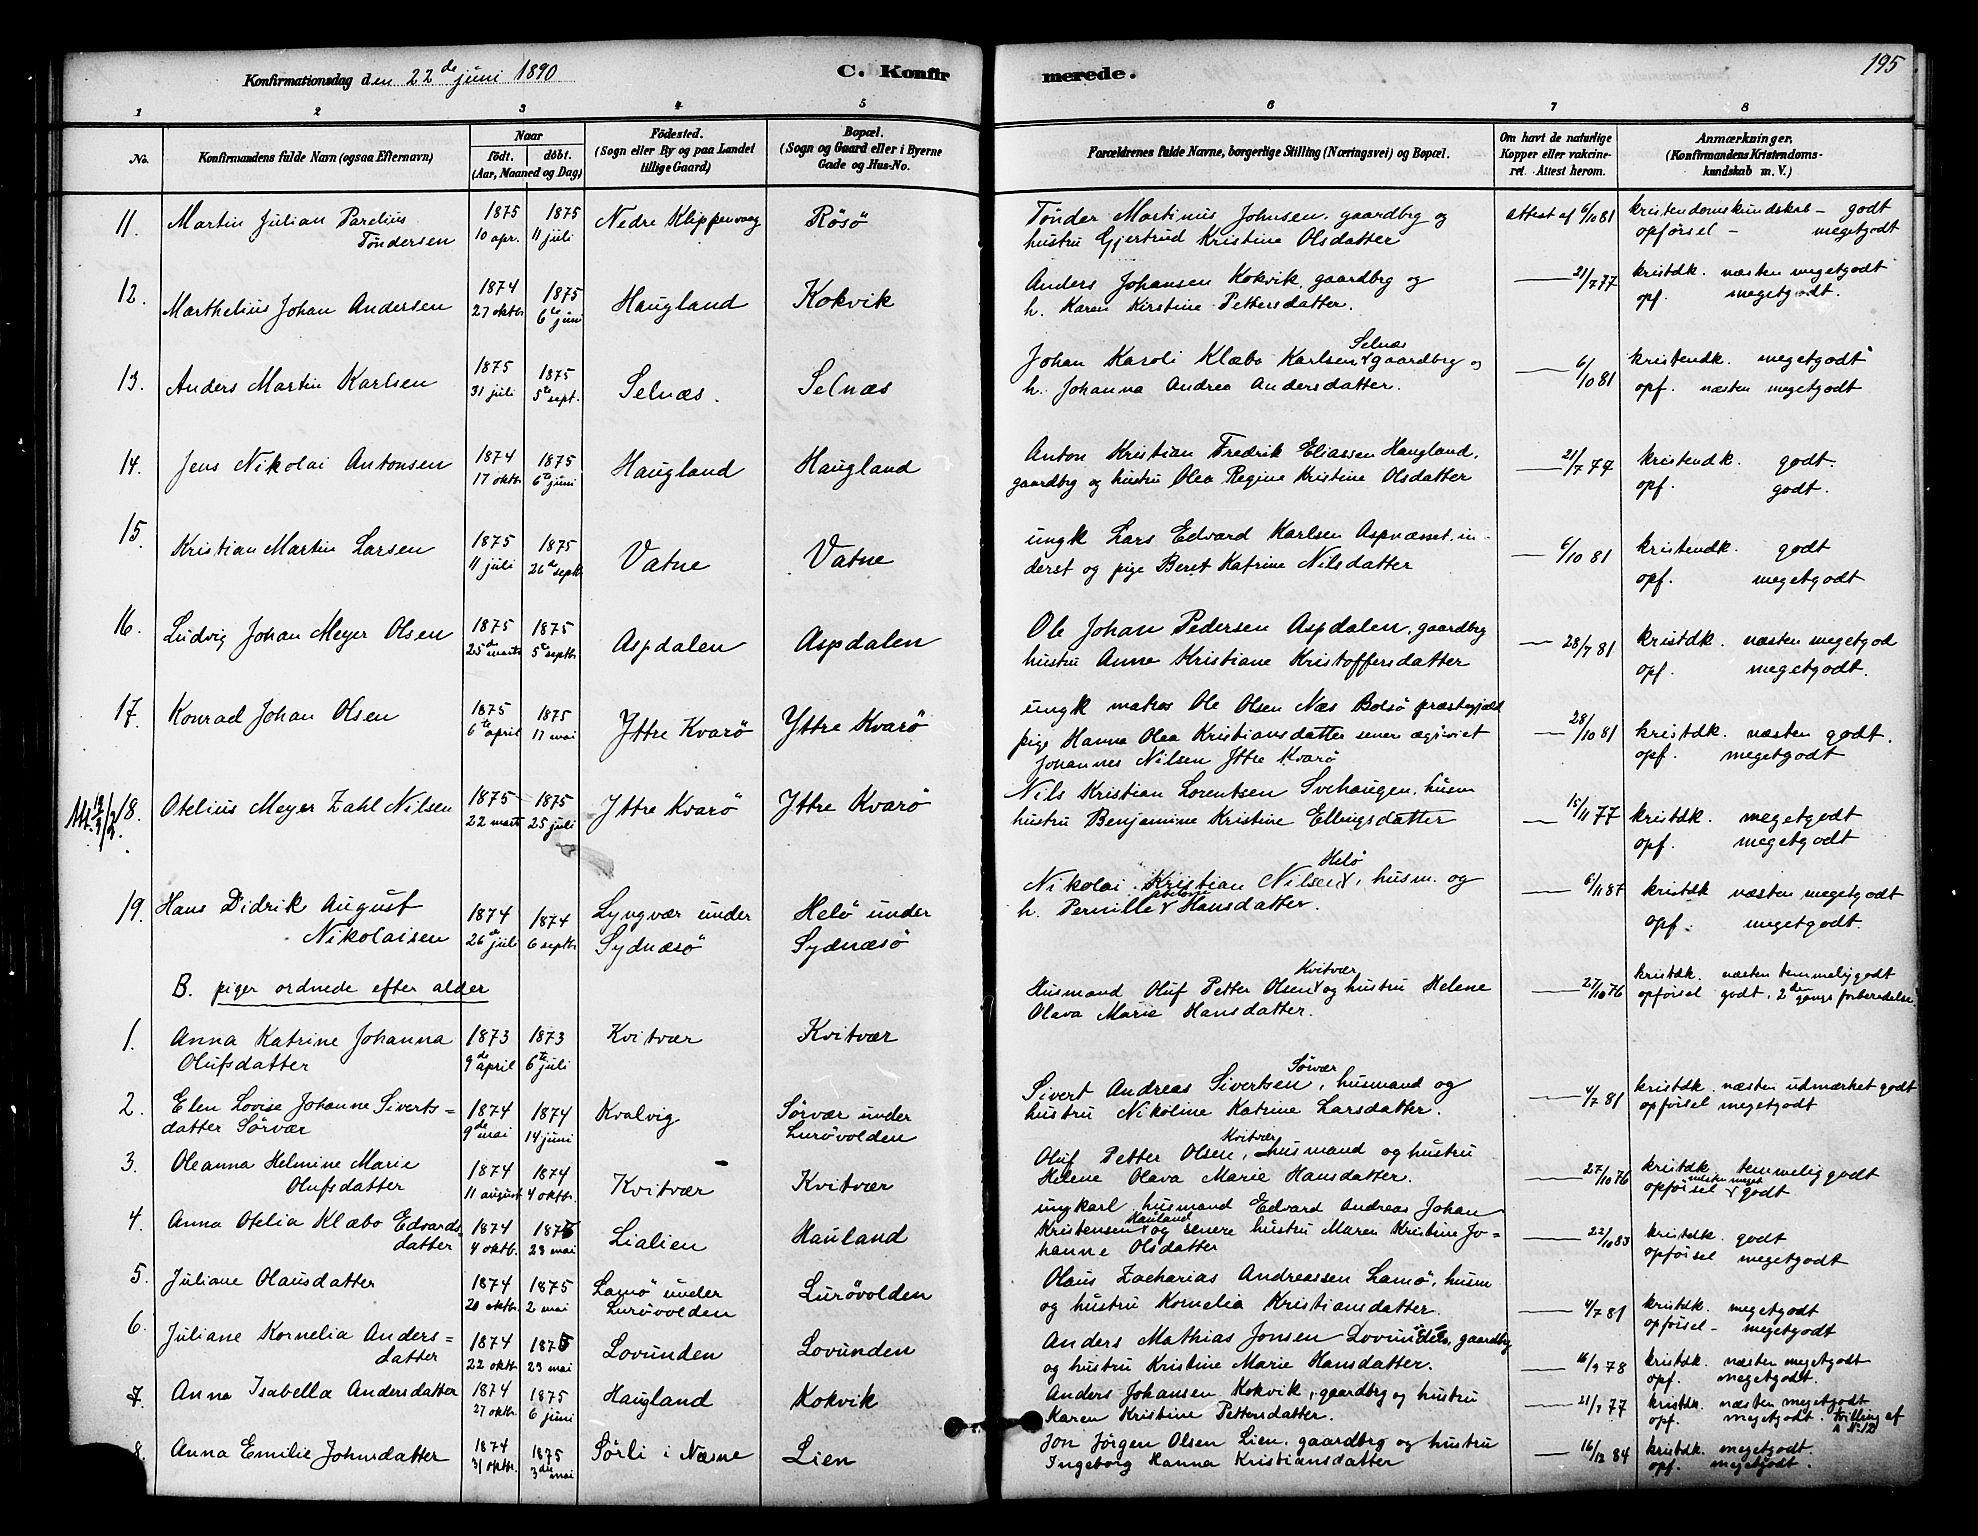 Konfirmationsdag den 22de juni 1890
C. Konfirmerede.
195
1 2 3 4 5 6 7 8
No. Konfirmandens fulde Navn (ogsaa Efternavn) Naar födt. döbt. (Aar, Maaned og Dag) Födested. (Sogn eller By og paa Landet tillige Gaard) Bopæl. (Sogn og Gaard eller i Byerne Gade og Hus-No. Forældrenes fulde Navne, borgerlige Stilling (Næringsvei) og Bopæl. Om havt de naturlige Kopper eller vakcineret. Attest herom. Anmærkninger, (Konfirmandens Kristendomskundskab m. V.)
11. Martin Julian Parelius Tøndersen 1875 10 apr. 1875 11 juli Nedre Klippenvaag Røsö
Tønder Martinus Johnsen, gaardbrg og
hustru Gjertrud Kristine Olsdatter
attest af 6/10 81 kristendomskundskab - godt
opførsel - megetgodt
12. Marthelius Johan Andersen 1874 27 oktbr 1875 6te juni Haugland Kokvik
Anders Johansen Kokvik, gaardbrg og
h. Karen Kirstine Pettersdatter.
21/7 77 kristdk. næsten megetgodt
opf. megetgodt.
13. Anders Martin Karlsen 1875 31 juli 1875 5te sept. Selnæs. Selnæs
Johan Karoli Klæbo Karlsen Selnæs gaardbrg og
h. Johanna Andrea Andersdatter.
6/10 81 kristendk. megetgodt
opf. næsten megetgodt
14. Jens Nikolai Antonsen 1874 17 oktbr 1875 6te juni Haugland Haugland
Anton Kristian Fredrik Eliassen Haugland,
gaardbrg og hustru Olea Regine Kristine Olsdatter
21/7 77 kristendk. godt.
opf. godt.
15. Kristian Martin Larsen 1875 11 juli 1875 26de septbr Vatne Vatne
ungk Lars Edvard Karlsen Aspnæsset, in-
derst og pige Beret Katrine Nilsdatter
6/10 81 kristendk. godt
opf. megetgodt
16. Ludvig Johan Meyer Olsen 1875 25de marts 1875 5te septbr Aspdalen Aspdalen
Ole Johan Pedersen Aspdalen, gaardbrg
hustru Anne Kristiane Kristoffersdatter
28/7 81 kristdk. næsten megetgod
opf. megetgodt.
17. Konrad Johan Olsen 1875 6te april 1875 17 mai Yttre Kvarö Yttre Kvarö
ungk Ole Olsen Næs Bolsö præstegjeld
pige Hanna Olea Kristiansdatter
Johannes Nilsen Yttre Kvarö
28/10 81 kristdk. næsten godt.
opf. megetgodt
18. Otelius Meyer Zahl Nilsen 1875 22 marts 1875 25 juli Yttre Kvarö Yttre Kvarö
Nils Kristian Lorentsen Svehaugen, husm
hustru Benjamine Kristine Ellingsdatter
15/11 77 kristdk. megetgodt
opf. megetgodt
19. Hans Didrik August Nikolaisen 1874 26de juli 1874 6 septbr Lyngvær under Sydnæsö Helö under Sydnæsö
Nikolai Kristian Nilsen Helö, husm. og
h. Pernille Hansdatter.
6/11 87 kristdk næsten megetgodt
opf. megetgodt.
B. piger ordnede efter alder
1. Anna Katrine Johanna Olufsdatter 1873 9de april 1873 6te juli Kvitvær Kvitvær
Husmand Oluf Petter Olsen Kvitvær og hustru Helene
Olava Marie Hansdatter.
27/10 76 kristdk. næsten temmelig godt
opførsel godt, 2den gangs forberedelse.
2. Elen Lovise Johanne Siverts=
datter Sörvær 1874 9de mai 1874 14 juni Kvalvig Sörvær under Lurövolden
Sivert Andreas Sivertsen Sörvær, husmand og
hustru Nikoline Katrine Larsdatter.
4/7 81 kristdk. næsten udmærket godt
opførsel megetgodt
3. Oleanna Helmine Marie Olufsdatter 1874 11 august 1874 4 oktbr. Kvitvær Kvitvær
Oluf Petter Olsen Kvitvær, husmand og hustru
Helene Olava Marie Hansdatter.
27/10 76 kristdk. temmelig godt
opførsel næsten meget godt
4. Anna Otelia Klæbo Edvards=
datter 1874 4 oktb. 1875 23 mai Lialien Hauland
ungkarl, husmand Edvard Andreas Johan
Kristensen Hauland og senere hustru Maren Kristine Jo=
hanne Olsdatter
22/10 83 kristdk. godt
opførsel megetgodt
5. Juliane Olausdatter 1874 20 oktbr 1875 2 mai Lamö under Lurövolden Lurövolden
Olaus Zacharias Andreassen Lamö, husm
og hustru Kornelia Kristiansdatter.
4/7 81 kristdk. megetgodt
opførsel - megetgodt
6. Juliane Kornelia Anders=
datter 1874 22 oktbr 1875 23 mai Lovunden Lovunden
Anders Mathias Jonsen Lovunden, gaardbrg
og hustru Kristine Marie Hansdatter.
16/9 78 kristdk. næsten megetgodt
opf. megetgodt.
7. Anna Isabella Andersdatter 1874 27 oktbr. 1875 6 juni Haugland Kokvik
Anders Johansen Kokvik, gaardbrg og hustru
Karen Kristine Pettersdatter.
21/7 77 kristdk. næsten megetgodt
opf. megetgodt. tvilling af N. 12
8. Anna Emilie Johnsdatter 1874 31 oktbr. 1875 3de mai Sörli i Næsne Lien
Jon Jörgen Olsen Lien, gaardbrg og hustru
Ingeborg Hanna Kristiansdatter
16/12 84 kristdk. megetgodt.
opf. megetgodt.